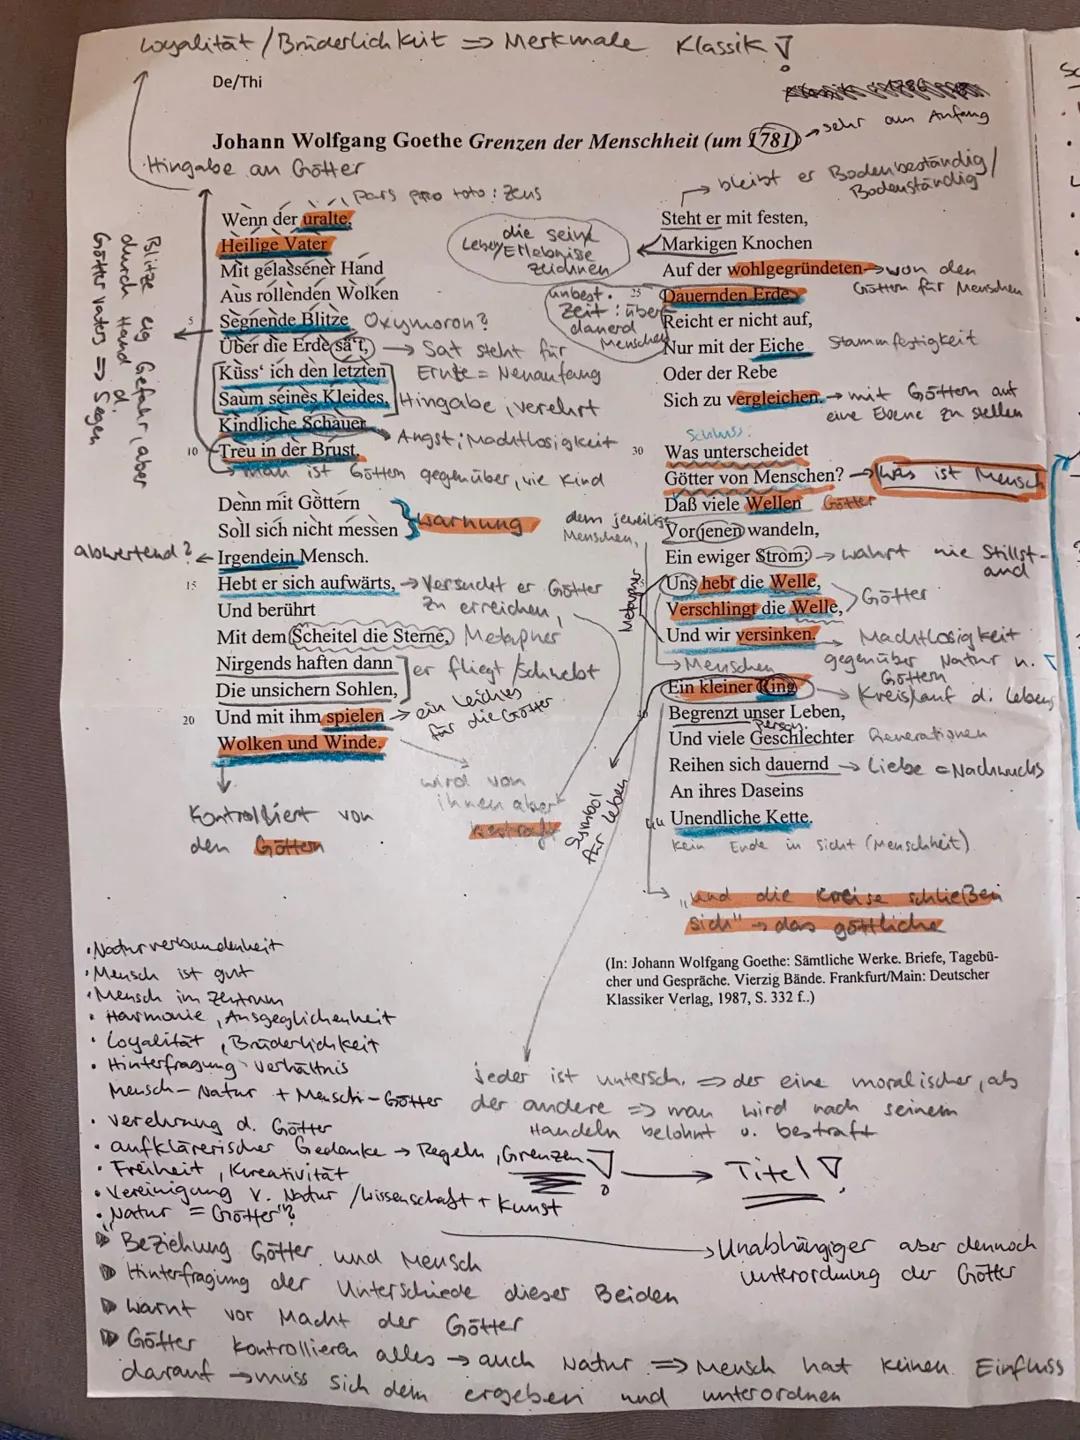 Loyalität / Brüderlichkeit => Merkmale Klassik!
De/Thi
Johann Wolfgang Goethe Grenzen der Menschheit (um 1781)
→ sehr am Anfang
Hingabe an Götter
pars pro toto: Zeus
Wenn der uralte,
Heilige Vater
Mit gelassener Hand
Aus rollenden Wolken
5 Segnende Blitze Oxymoron?
Über die Erde sä't, → Sat steht für
Küss' ich den letzten Ernte = Neuanfang
Saum seines Kleides, Hingabe, verehrt
Kindliche Schauer → Angst; Machtlosigkeit
10 Treu in der Brust.
→ man ist Göttern gegenüber, wie Kind
Blitze eig Gefahr, aber
durch Hand d.
Götter vaters => Segen
Denn mit Göttern
Soll sich nicht messen } Warnung
abwertend? ← Irgendein Mensch.
15 Hebt er sich aufwärts, → Versucht er Götter
Und berührt zu erreichen,
Mit dem Scheitel die Sterne, Metapher
Nirgends haften dann er fliegt / schwebt
Die unsichern Sohlen,
20 Und mit ihm spielen → ein leichtes
für die Götter
Wolken und Winde.
Kontrolliert von
den Göttern
wird von
ihnen aber
bestraft
→ bleibt er Bodenbeständig /
Bodenständig
Steht er mit festen,
Markigen Knochen
die seine
Leben/Erlebnisse
zeichnen
Auf der wohlgegründeten → von den
Göttern für Menschen
25 Dauernden Erde;
unbest.
Zeit: über
danerd
Menschen
Reicht er nicht auf,
Nur mit der Eiche Stammfestigkeit
Oder der Rebe
Sich zu vergleichen. → mit Göttern auf
eine Ebene zu stellen
Schluss:
30 Was unterscheidet
Götter von Menschen? → Was ist Mensch
Daß viele Wellen Götter
Vor jenen wandeln,
dem jeweilig
Menschen,
Ein ewiger Strom: → wahrt nie Stillst-
and
Uns hebt die Welle,
Verschlingt die Welle, > Götter
Metapher
Und wir versinken. → Machtlosigkeit
gegenüber Natur u.
Göttern
→ Menschen
Ein kleiner Ring → Kreislauf d. Lebens
Begrenzt unser Leben,
Und viele Geschlechter Generationen
Reihen sich dauernd → Liebe = Nachwuchs
An ihres Daseins
Unendliche Kette.
kein Ende in Sicht (Menschheit)
Symbol
für Leben
→ „und die Kreise schließen
sich" → das göttliche
(In: Johann Wolfgang Goethe: Sämtliche Werke. Briefe, Tagebü-
cher und Gespräche. Vierzig Bände. Frankfurt/Main: Deutscher
Klassiker Verlag, 1987, S. 332 f..)
• Naturverbundenheit
• Mensch ist gut
• Mensch im Zentrum
• Harmonie, Ausgeglichenheit
• Loyalität, Brüderlichkeit
• Hinterfragung Verhältnis
Mensch - Natur + Mensch - Götter
• Verehrung d. Götter
• aufklärerischer Gedanke → Regeln, Grenzen! → Titel!
• Freiheit, Kreativität
• Vereinigung v. Natur / Wissenschaft + Kunst
• „Natur = Götter"?
jeder ist untersch. => der eine moralischer, als
der andere => man wird nach seinem
Handeln belohnt o. bestraft
→ Unabhängiger aber dennoch
Unterordnung der Götter
Beziehung Götter und Mensch
Hinterfragung der Unterschiede dieser Beiden
Warnt vor Macht der Götter
Götter kontrollieren alles → auch Natur => Mensch hat keinen Einfluss
darauf → muss sich dem ergeben und unterordnen